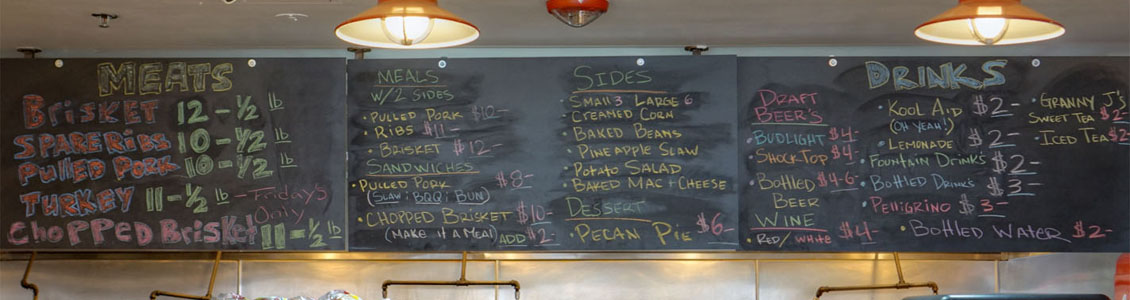 MEATS
BRISKET 12-½ lb
SPARERIBS 10-½ lb
Pulled Pork 10-½
TURKEY 11-½ - Fridays Only
Chopped Brisket 11-½ lb
MEALS
W/2 SIDES
• PULLED PORK $10-
• RIBS $11-
• BRISKET $12-
SANDWICHES
• PULLED PORK $8-
(SLAW & BBQ & BUN)
• CHOPPED BRISKET $10-
(MAKE IT A MEAL) ADD $2-
SIDES
• SMALL 3 LARGE 6
• CREAMED CORN
• BAKED BEANS
• PINEAPPLE SLAW
• POTATO SALAD
• BAKED MAC + CHEESE
DESSERT
• PECAN PIE $6-
DRAFT
BEER'S
• BUDLIGHT $4-
• SHOCK TOP $4-
• BOTTLED $4-6-
BEER
WINE
• RED/WHITE $4-
DRINKS
• KOOL AID $2-
(OH YEAH!)
• LEMONADE $2-
• FOUNTAIN DRINKS $2-
• BOTTLED DRINKS $3-
• PELLIGRINO $3-
• BOTTLED WATER $2-
• GRANNY J'S
SWEET TEA $2-
• ICED TEA $2-